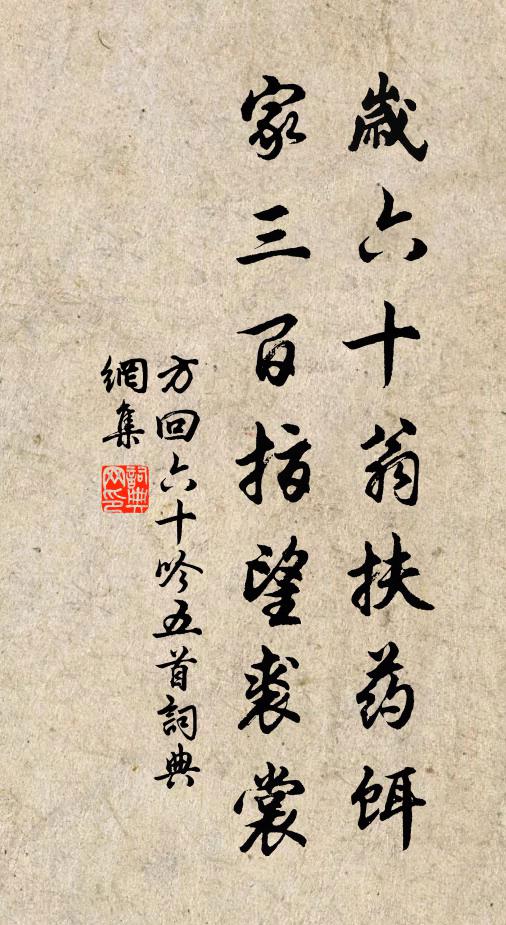 歲六十翁扶药餌
家三百指望裘裳
方回六十吟五首詞典
網集
詞典網印